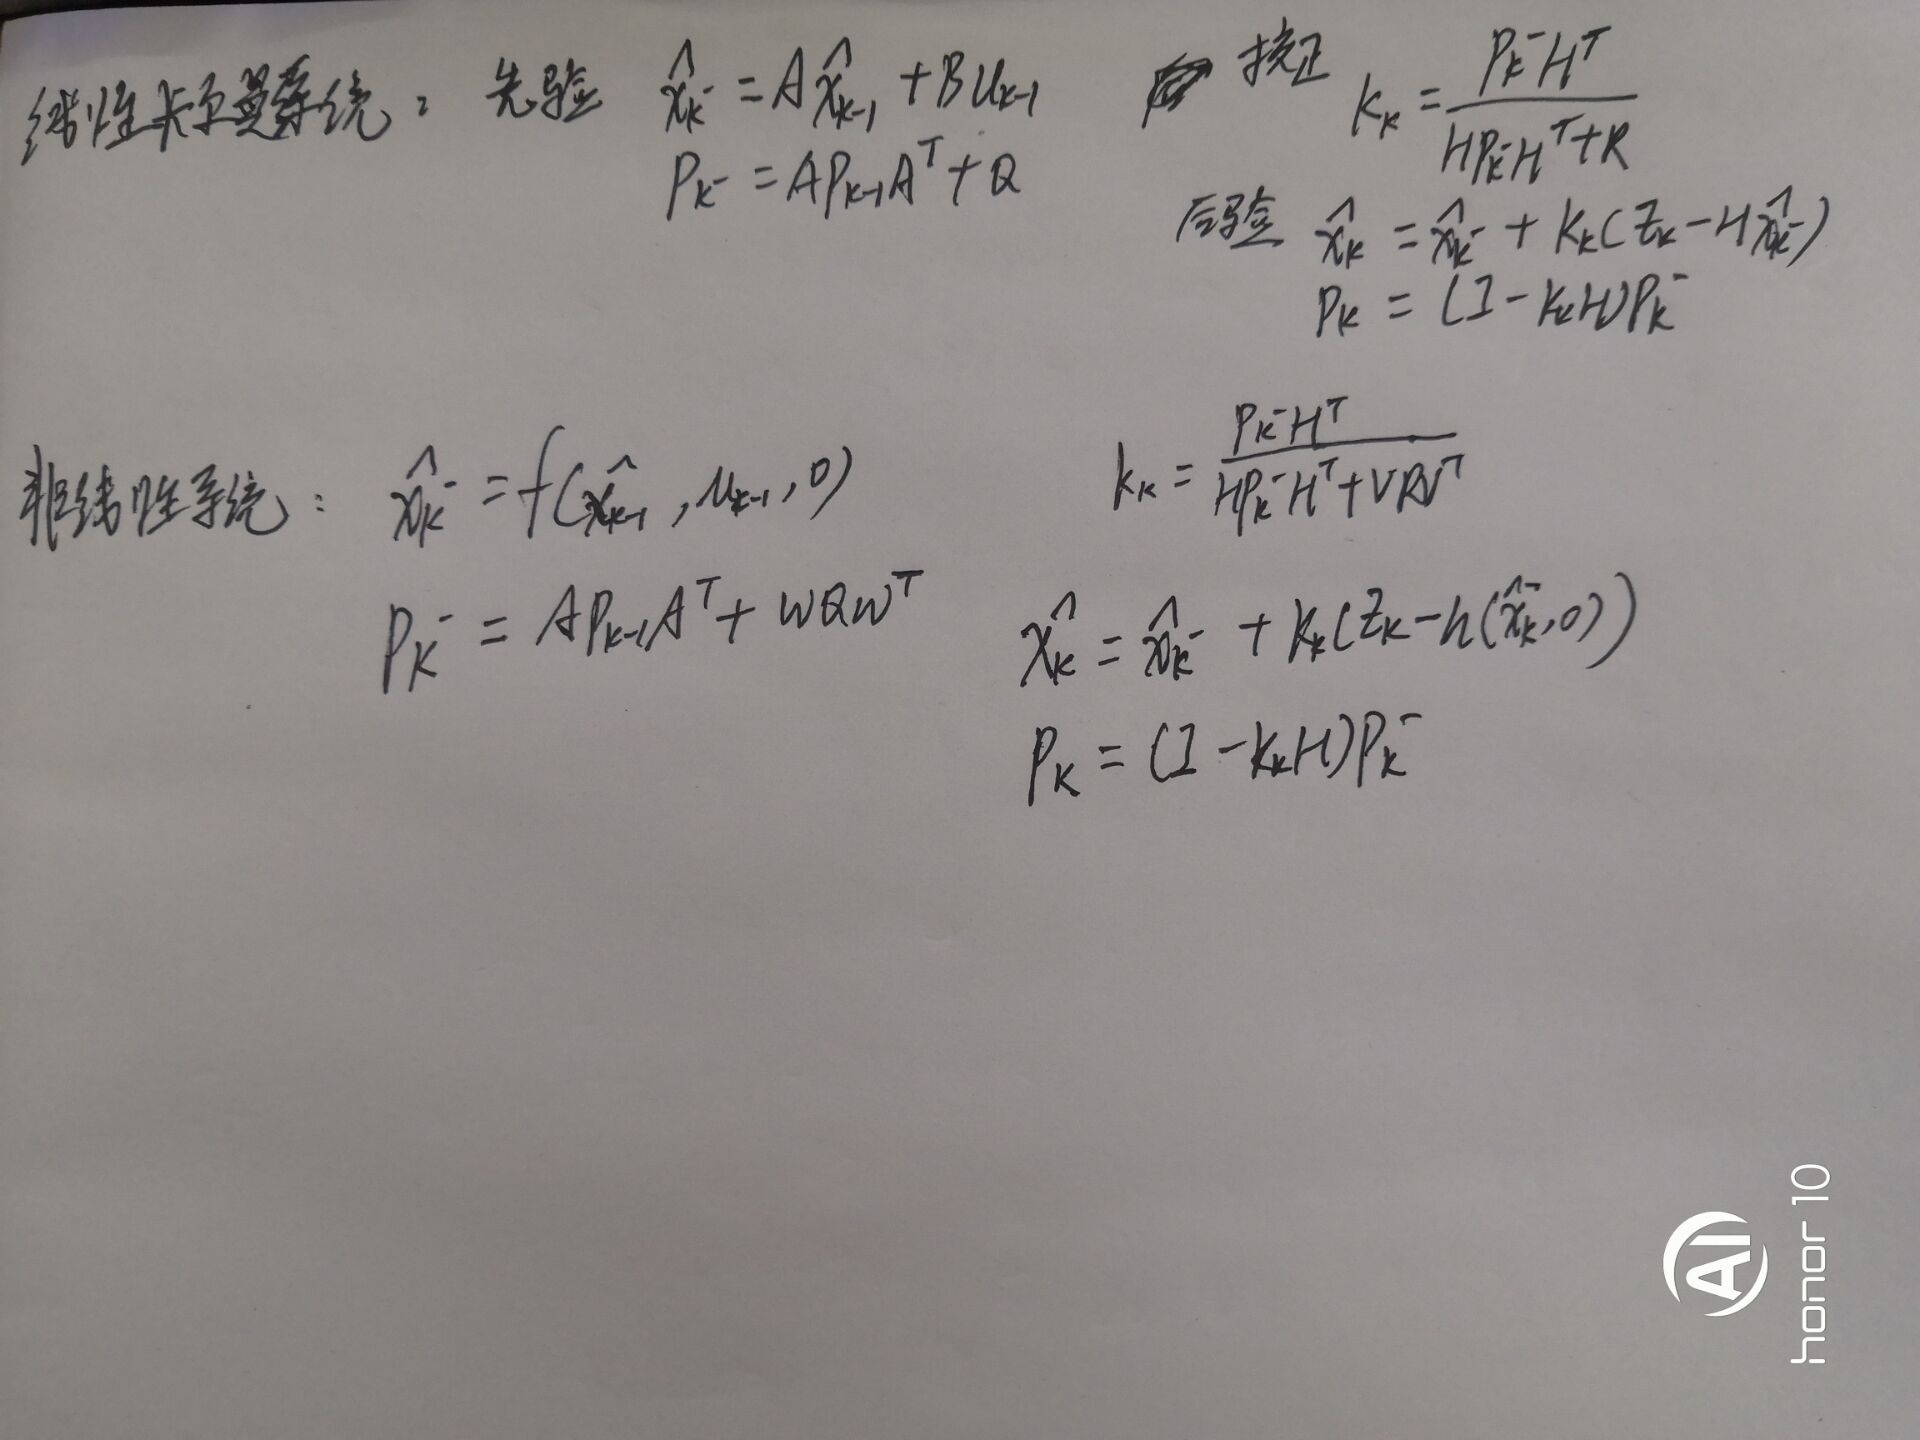 线性卡尔曼系统: 先验 x̂ₖ⁻ = Ax̂ₖ₋₁ + Buₖ₋₁
Pₖ⁻ = APₖ₋₁Aᵀ + Q
校正 Kₖ = Pₖ⁻Hᵀ / (HPₖ⁻Hᵀ + R)
后验 x̂ₖ = x̂ₖ⁻ + Kₖ(Zₖ - Hx̂ₖ⁻)
Pₖ = (I - KₖH)Pₖ⁻
非线性系统: x̂ₖ⁻ = f(x̂ₖ₋₁, uₖ₋₁, 0)
Pₖ⁻ = APₖ₋₁Aᵀ + WQWᵀ
Kₖ = Pₖ⁻Hᵀ / (HPₖ⁻Hᵀ + VRVᵀ)
x̂ₖ = x̂ₖ⁻ + Kₖ(Zₖ - h(x̂ₖ⁻, 0))
Pₖ = (I - KₖH)Pₖ⁻
AI honor 10